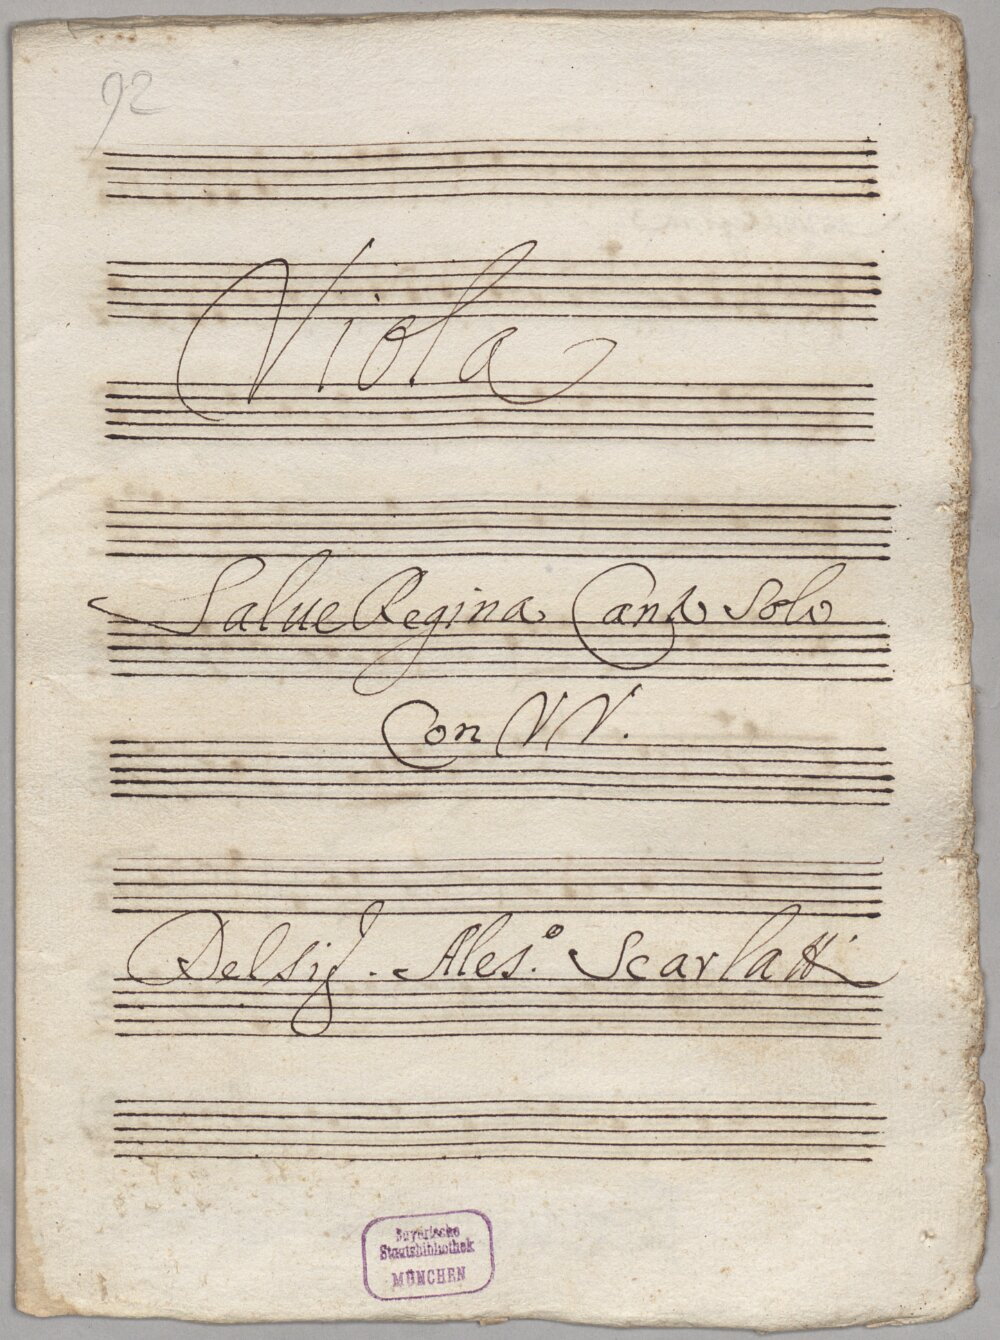 92
Viola
Salue Regina Canto Solo
Con VV.
Del Sig. Ales.o Scarlatti
Bayerische
Staatsbibliothek
MÜNCHEN